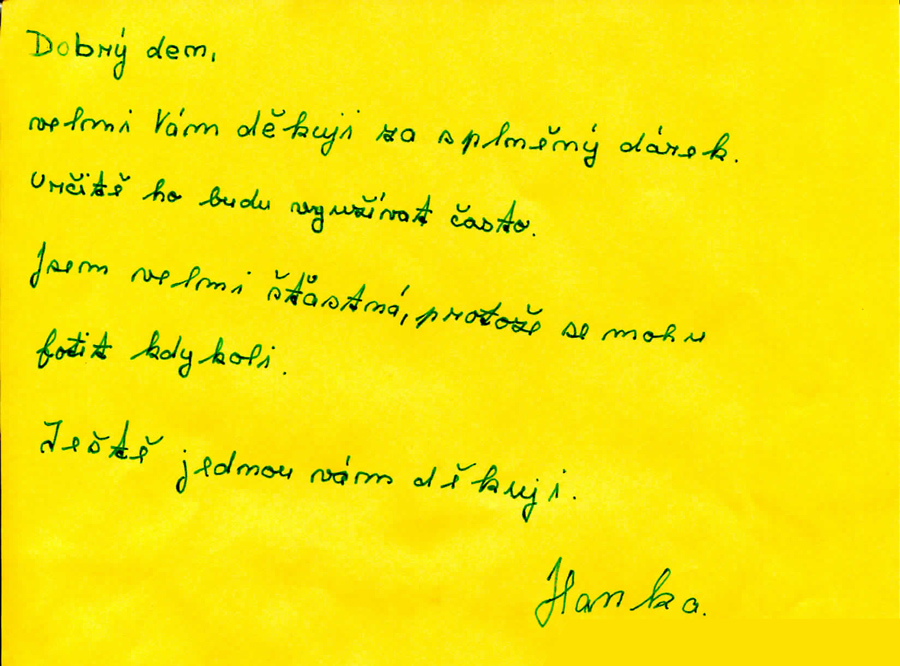 Dobrý den,
velmi Vám děkuji za splněný dárek.
Určitě ho budu využívat často.
Jsem velmi šťastná, protože se mohu
fotit kdykoli.
Ještě jednou vám děkuji.
Hanka.